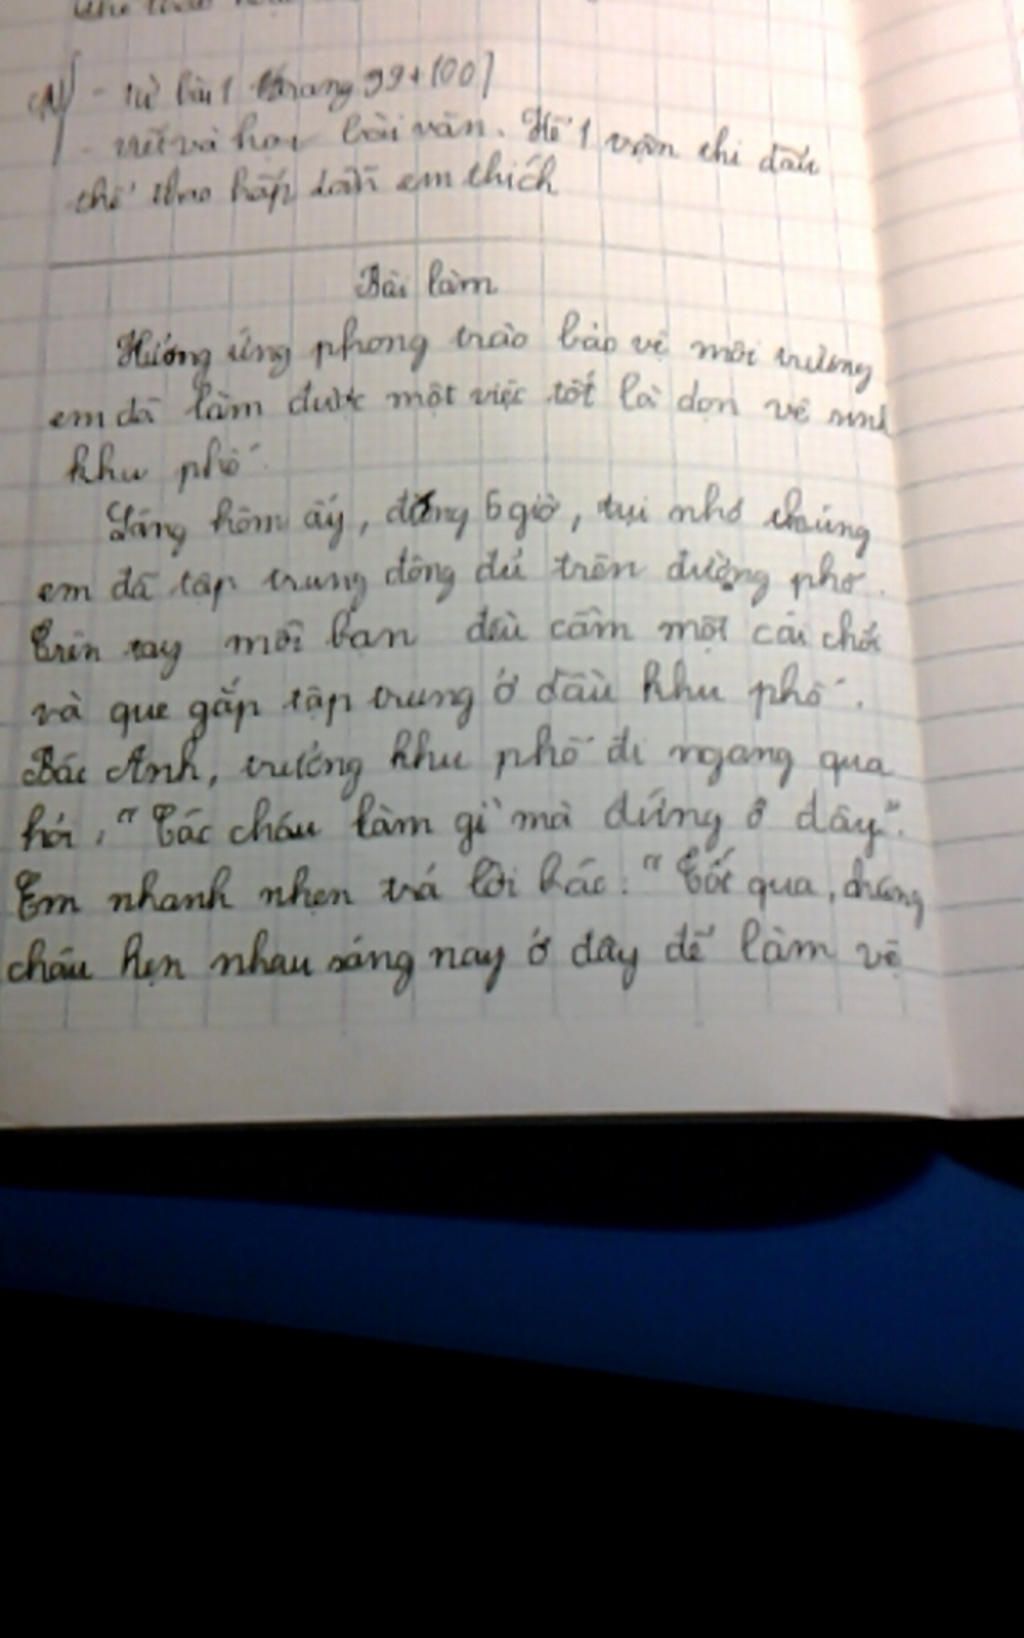 - từ bài 1 trang 99+100
- viết và học bài văn. Kể 1 trận thi đấu
thể thao hấp dẫn em thích
Bài làm
Hưởng ứng phong trào bảo vệ môi trường
em đã làm được một việc tốt là dọn vệ sinh
khu phố.
Sáng hôm ấy, đúng 6 giờ, tụi nhỏ chúng
em đã tập trung đông đủ trên đường phố.
Trên tay mỗi bạn đều cầm một cái chổi
và que gắp tập trung ở đầu khu phố.
Bác Anh, trưởng khu phố đi ngang qua
hỏi, "Các cháu làm gì mà đứng ở đây".
Em nhanh nhẹn trả lời bác: "Tốt qua, chúng
cháu hẹn nhau sáng nay ở đây để làm vệ